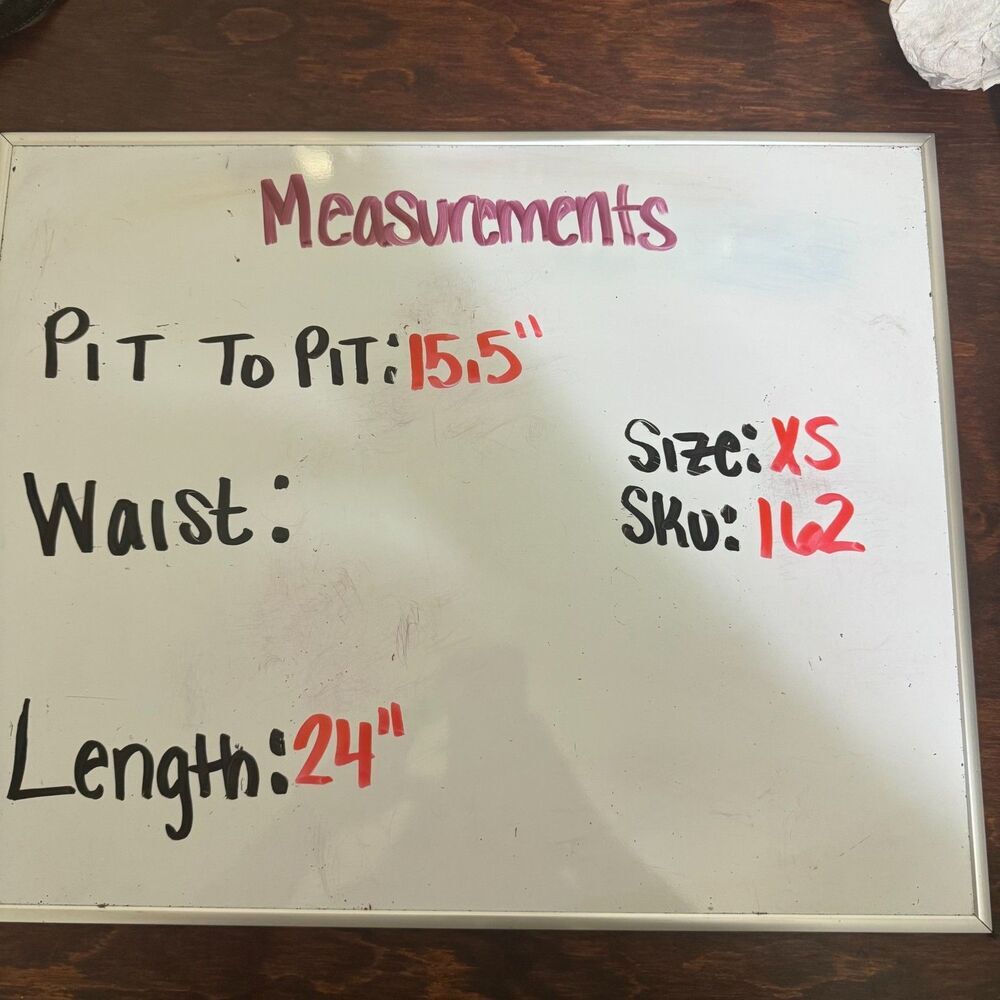 Measurements
PiT To PiT: 15.5"
Waist:
Size: XS
SKU: 162
Length: 24"